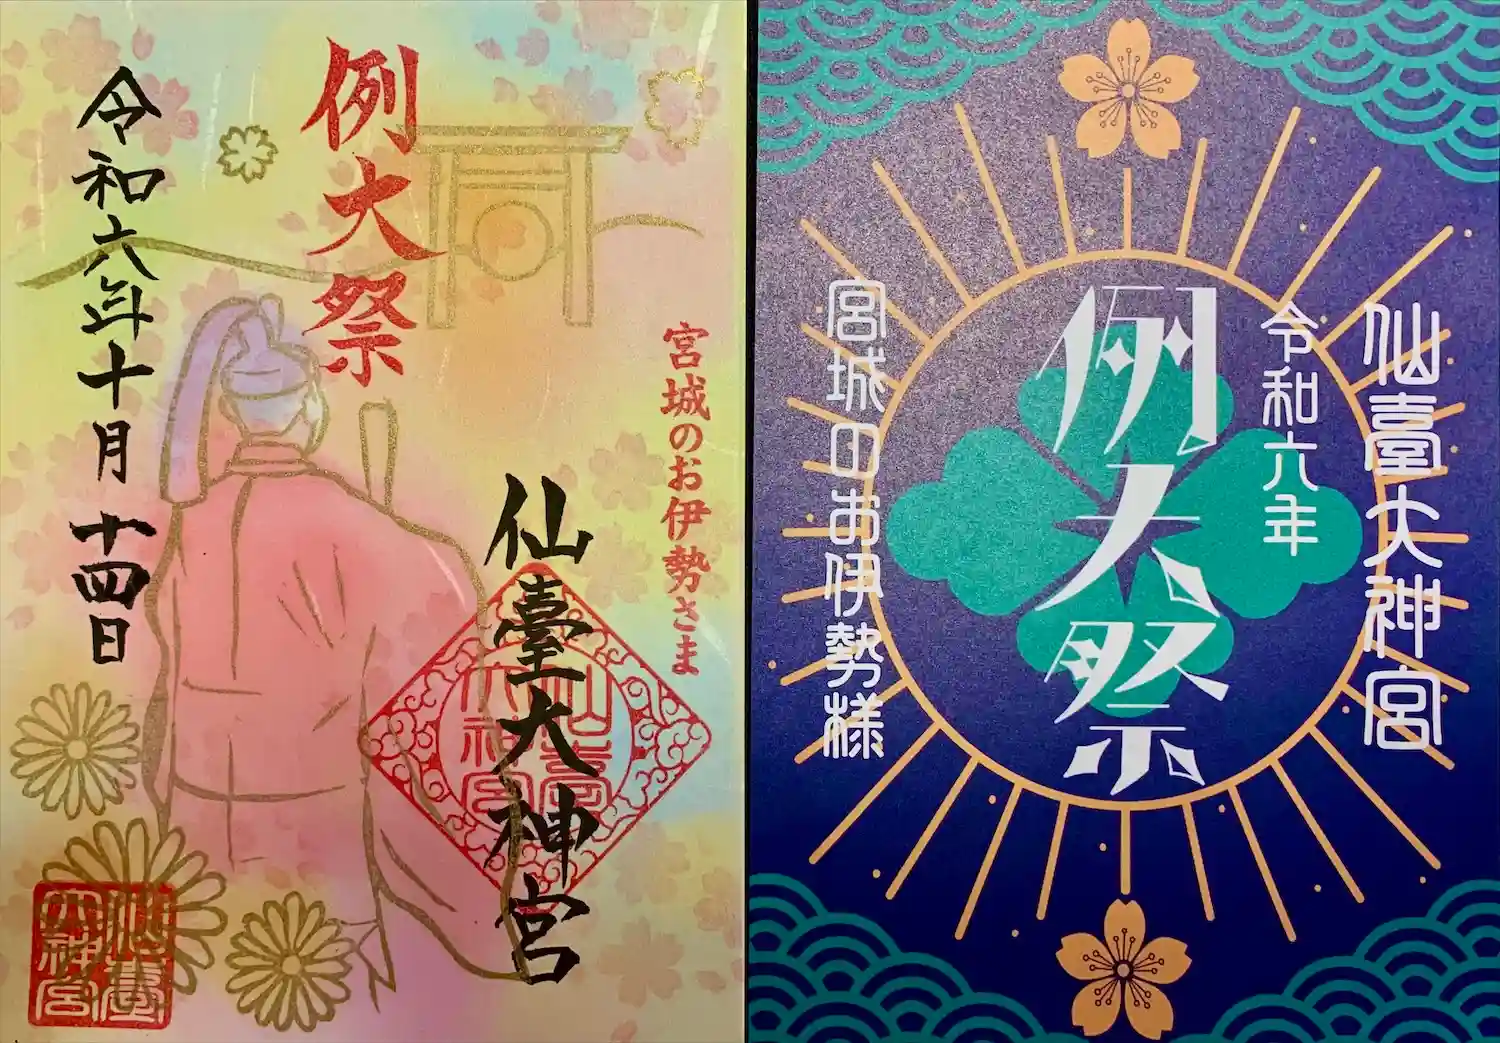 例大祭
宮城のお伊勢さま
仙臺大神宮
令和六年十月十四日
仙臺大神宮
仙臺大神宮
仙臺大神宮
令和六年
例大祭
宮城のお伊勢様